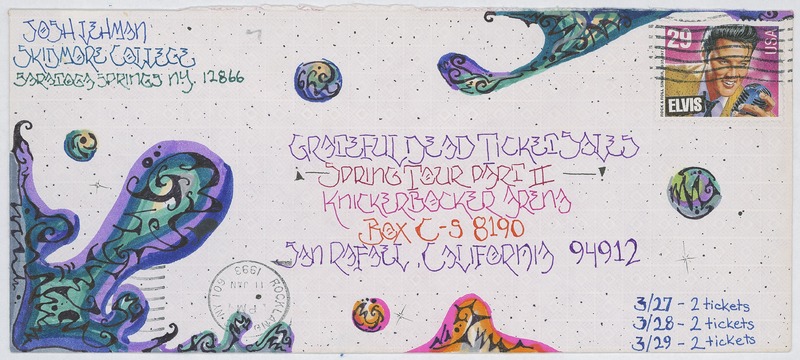 Josh Lehman
Skidmore College
Saratoga Springs NY. 12866
29
USA
ELVIS
Grateful Dead Ticket Sales
Spring Tour Part II
Knickerbocker Arena
Box C-S 8190
San Rafael, California 94912
ROCKLAND
1993
11 JAN
PM
3/27 - 2 tickets
3/28 - 2 tickets
3/29 - 2 tickets